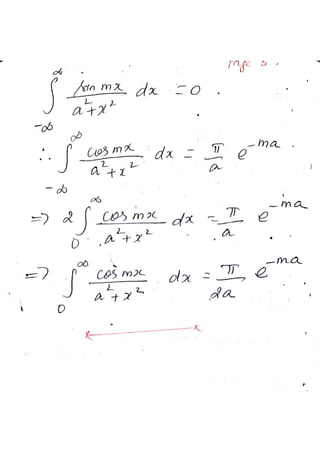 page 3.
∫_{-∞}^{∞} sin mx / (a² + x²) dx = 0.
∴ ∫_{-∞}^{∞} cos mx / (a² + x²) dx = π/a e^{-ma}
=> 2 ∫_{0}^{∞} cos mx / (a² + x²) dx = π/a e^{-ma}.
=> ∫_{0}^{∞} cos mx / (a² + x²) dx = π/2a e^{-ma}